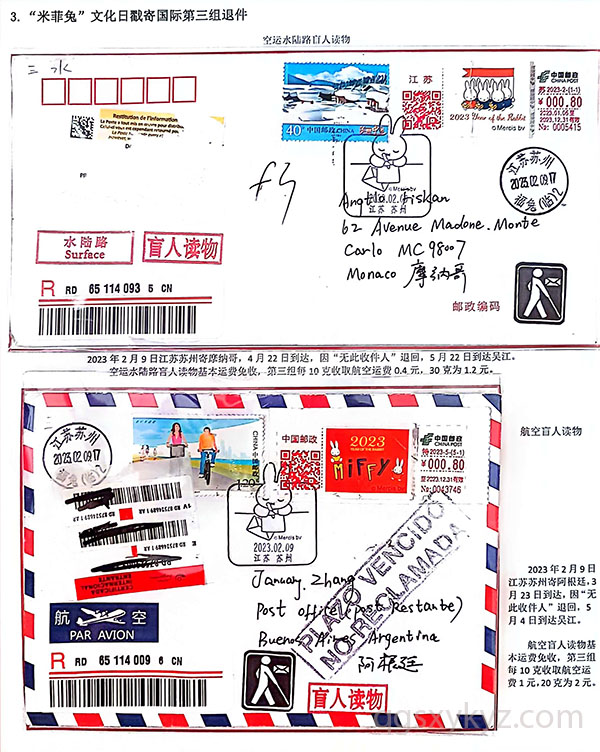 3. “米菲兔”文化日戳寄国际第三组退件
空运水陆路盲人读物
三 水
Restitution de l'information
江苏
中国邮政
CHINA POST
苏 2023-2-(1-1)
¥000.80
至2023.01.05
2023.12.31
No: 0005415
2023 Year of the Rabbit
© Mercis bv
40分 中国邮政 CHINA
© Mercis bv
2023.02.09
江苏 苏州
江苏苏州
2023.02.09.17
(临)2
Friskan
62 Avenue Madone. Monte
Carlo MC 98007
Monaco 摩纳哥
水陆路
Surface
盲人读物
R RD 65 114 093 5 CN
邮政编码
2023 年 2 月 9 日江苏苏州寄摩纳哥，4 月 22 日到达，因“无此收件人”退回，5 月 22 日到达吴江。
空运水陆路盲人读物基本运费免收，第三组每 10 克收取航空运费 0.4 元，30 克为 1.2 元。
航空盲人读物
江苏苏州
2023.02.09.17
中国邮政 CHINA
1.20元
中国邮政
2023
YEAR OF THE RABBIT
MIFFY
© Mercis bv
中国邮政
CHINA POST
2023-5-(5-1)
¥000.80
至2023.12.31有效
No: 0043746
© Mercis bv
2023.02.09
江苏 苏州
CERTIFICADA
INTERNACIONAL
ENTRANTE
PLAZO VENCIDO
NO RECLAMADA
January. Zhang
Post office (post Restante)
Buenos Aires Argentina
阿根廷
航空
PAR AVION
R RD 65 114 009 6 CN
盲人读物
2023 年 2 月 9 日
江苏苏州寄阿根廷，3
月 23 日到达，因“无
此收件人”退回，5
月 4 日到达吴江。
航空盲人读物基
本运费免收，第三组
每 10 克收取航空运
费 1 元，20 克为 2 元。
qgsxykyz.com